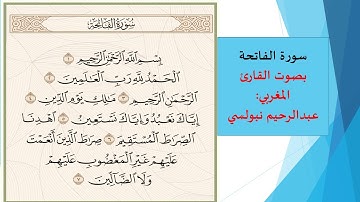 سُورَةُ الفَاتِحَةِ
بِسْمِ اللَّهِ الرَّحْمَٰنِ الرَّحِيمِ ١
الْحَمْدُ لِلَّهِ رَبِّ الْعَالَمِينَ ٢
الرَّحْمَٰنِ الرَّحِيمِ ٣ مَالِكِ يَوْمِ الدِّينِ ٤
إِيَّاكَ نَعْبُدُ وَإِيَّاكَ نَسْتَعِينُ ٥ اهْدِنَا
الصِّرَاطَ الْمُسْتَقِيمَ ٦ صِرَاطَ الَّذِينَ أَنْعَمْتَ
عَلَيْهِمْ غَيْرِ الْمَغْضُوبِ عَلَيْهِمْ
وَلَا الضَّالِّينَ ٧
سورة الفاتحة
بصوت القارئ
المغربي:
عبدالرحيم نبولسي